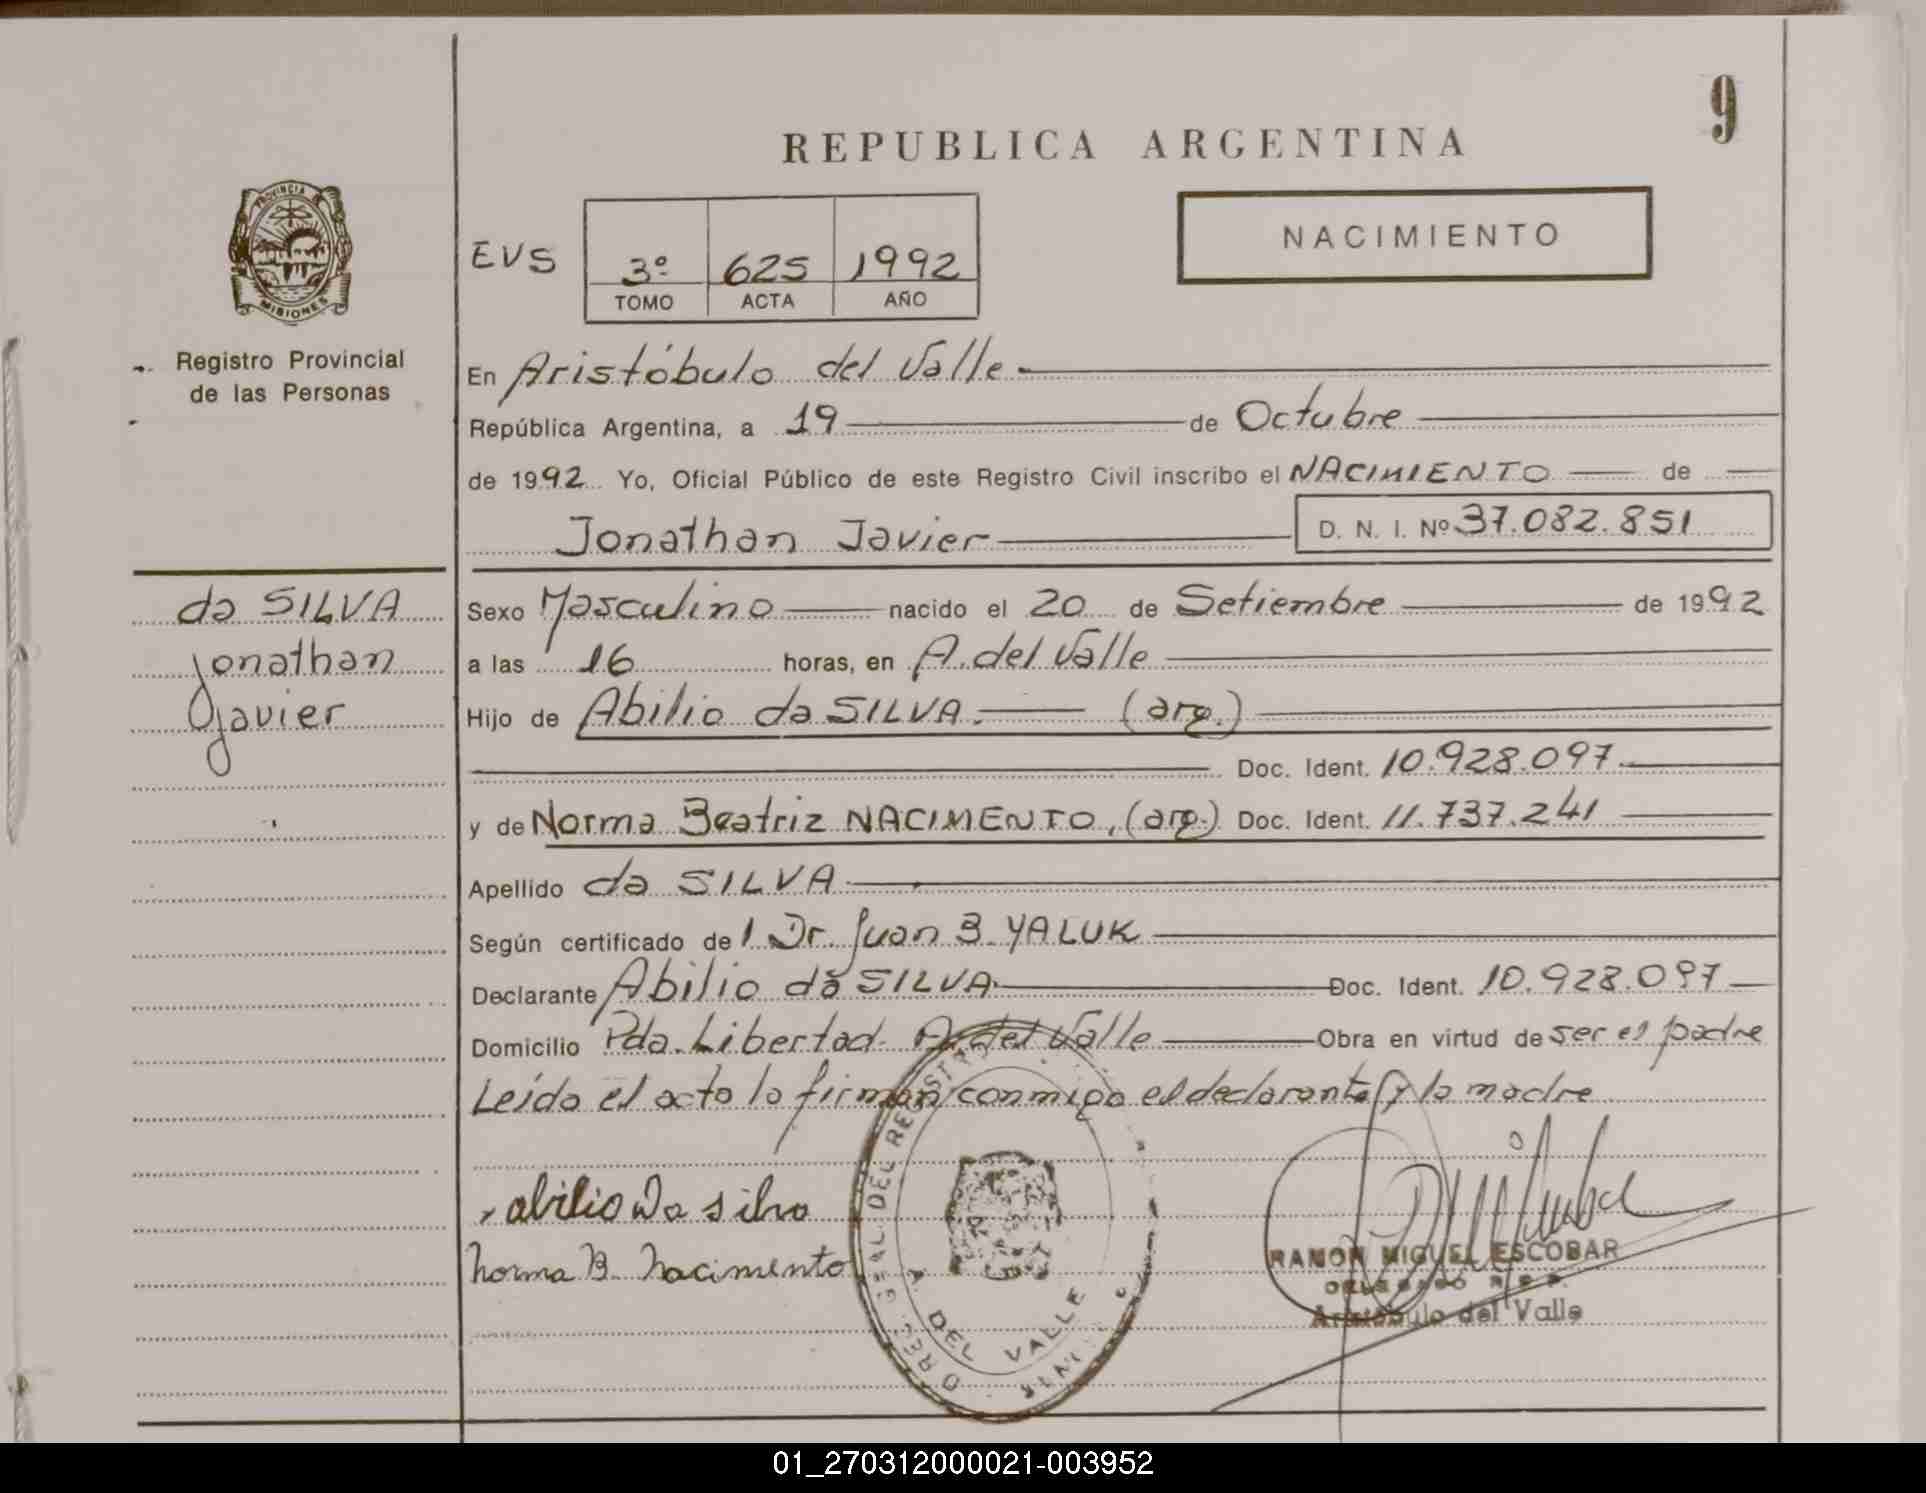 9
REPUBLICA ARGENTINA
PROVINCIA
MISIONES
EVS 3º 625 1992
TOMO ACTA AÑO
NACIMIENTO
Registro Provincial
de las Personas
En Aristóbulo del Valle
República Argentina, a 19 de Octubre
de 1992 Yo, Oficial Público de este Registro Civil inscribo el NACIMIENTO de
Jonathan Javier D. N. I. Nº 37.082.851
da SILVA
Jonathan
Javier
Sexo Masculino nacido el 20 de Setiembre de 1992
a las 16 horas, en A. del Valle
Hijo de Abilio da SILVA. (arg.)
Doc. Ident. 10.928.097
y de Norma Beatriz NACIMENTO, (arg.) Doc. Ident. 11.737.241
Apellido da SILVA
Según certificado del Dr. Juan B. YALUK
Declarante Abilio da SILVA Doc. Ident. 10.928.097
Domicilio Pda. Libertad. A. del Valle Obra en virtud de ser el padre
Leída el acta la firman conmigo el declarante y la madre
abilio Da silva
Norma B. Nacimento
DEL REGISTRO
A DEL VALLE
RAMON MIGUEL ESCOBAR
Aristóbulo del Valle
01_270312000021-003952